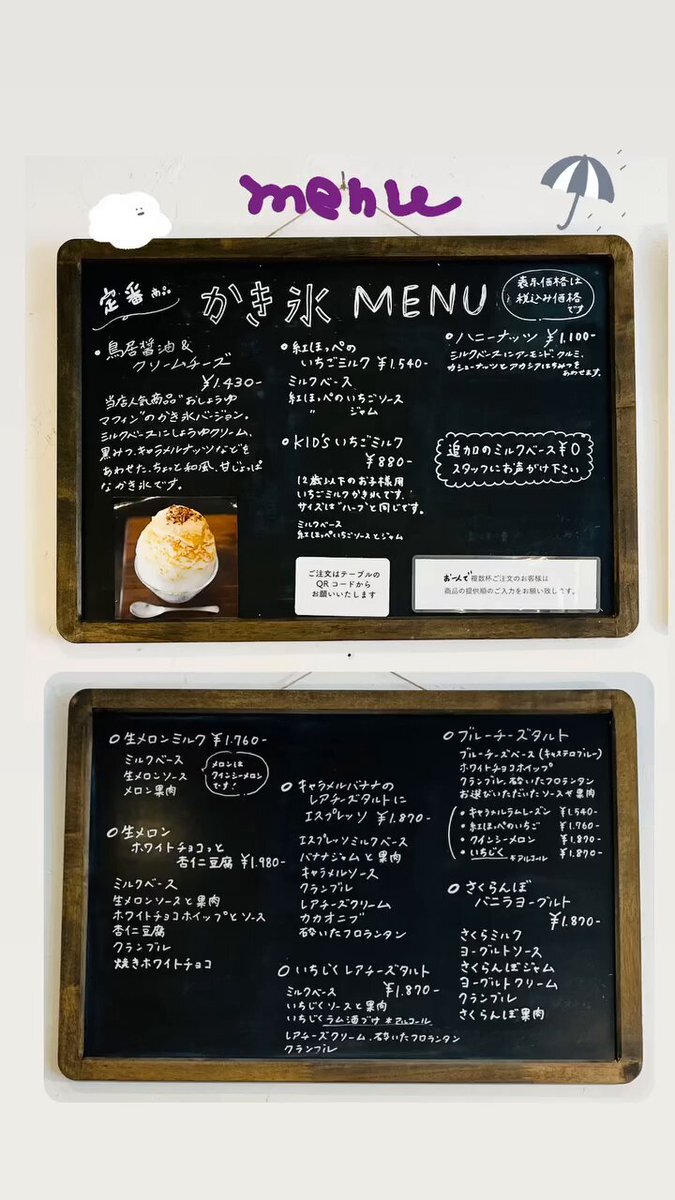 menu
定番
かき氷 MENU
表示価格は
税込み価格
です
・鳥居醤油&
クリームチーズ
¥1.430-
当店人気商品"おしょうゆ
マフィン"のかき氷バージョン。
ミルクベースにしょうゆクリーム、
黒みつ、キャラメルナッツなどを
あわせた、ちょっと和風、甘じょっぱ
なかき氷です。
○紅ほっぺの
いちごミルク ¥1.540-
ミルクベース
紅ほっぺのいちごソース
〃 ジャム
○KID'S いちごミルク
¥880-
12歳以下のお子様用
いちごミルクかき氷です。
サイズは"ハーフ"と同じです。
ミルクベース
紅ほっぺいちごソースとジャム
ご注文はテーブルの
QRコードから
お願いいたします
○ハニーナッツ ¥1.100-
ミルクベースにアーモンド、クルミ、
カシューナッツとアカシアはちみつを
あわせます。
追加のミルクベース¥0
スタッフにお声がけ下さい
お一人で複数杯ご注文のお客様は
商品の提供順のご入力をお願い致します。
○生メロンミルク ¥1.760-
ミルクベース
生メロンソース
メロン果肉
メロンは
クインシーメロン
です!
○生メロン
ホワイトチョコっと
杏仁豆腐 ¥1.980-
ミルクベース
生メロンソースと果肉
ホワイトチョコホイップとソース
杏仁豆腐
クランブル
焼きホワイトチョコ
○キャラメルバナナの
レアチーズタルトに
エスプレッソ ¥1.870-
エスプレッソミルクベース
バナナジャムと果肉
キャラメルソース
クランブル
レアチーズクリーム
カカオニブ
砕いたフロランタン
○いちじくレアチーズタルト
¥1.870-
ミルクベース
いちじくソースと果肉
いちじくラム酒づけ *アルコール
レアチーズクリーム、砕いたフロランタン
クランブル
○ブルーチーズタルト
ブルーチーズベース(キャステロブルー)
ホワイトチョコホイップ
クランブル、砕いたフロランタン
お選びいただいたソースや果肉
・キャラメルラムレーズン ¥1.540-
・紅ほっぺのいちご ¥1.760-
・クインシーメロン ¥1.870-
・いちじく *アルコール ¥1.870-
○さくらんぼ
バニラヨーグルト
¥1.870-
さくらミルク
ヨーグルトソース
さくらんぼジャム
ヨーグルトクリーム
クランブル
さくらんぼ果肉